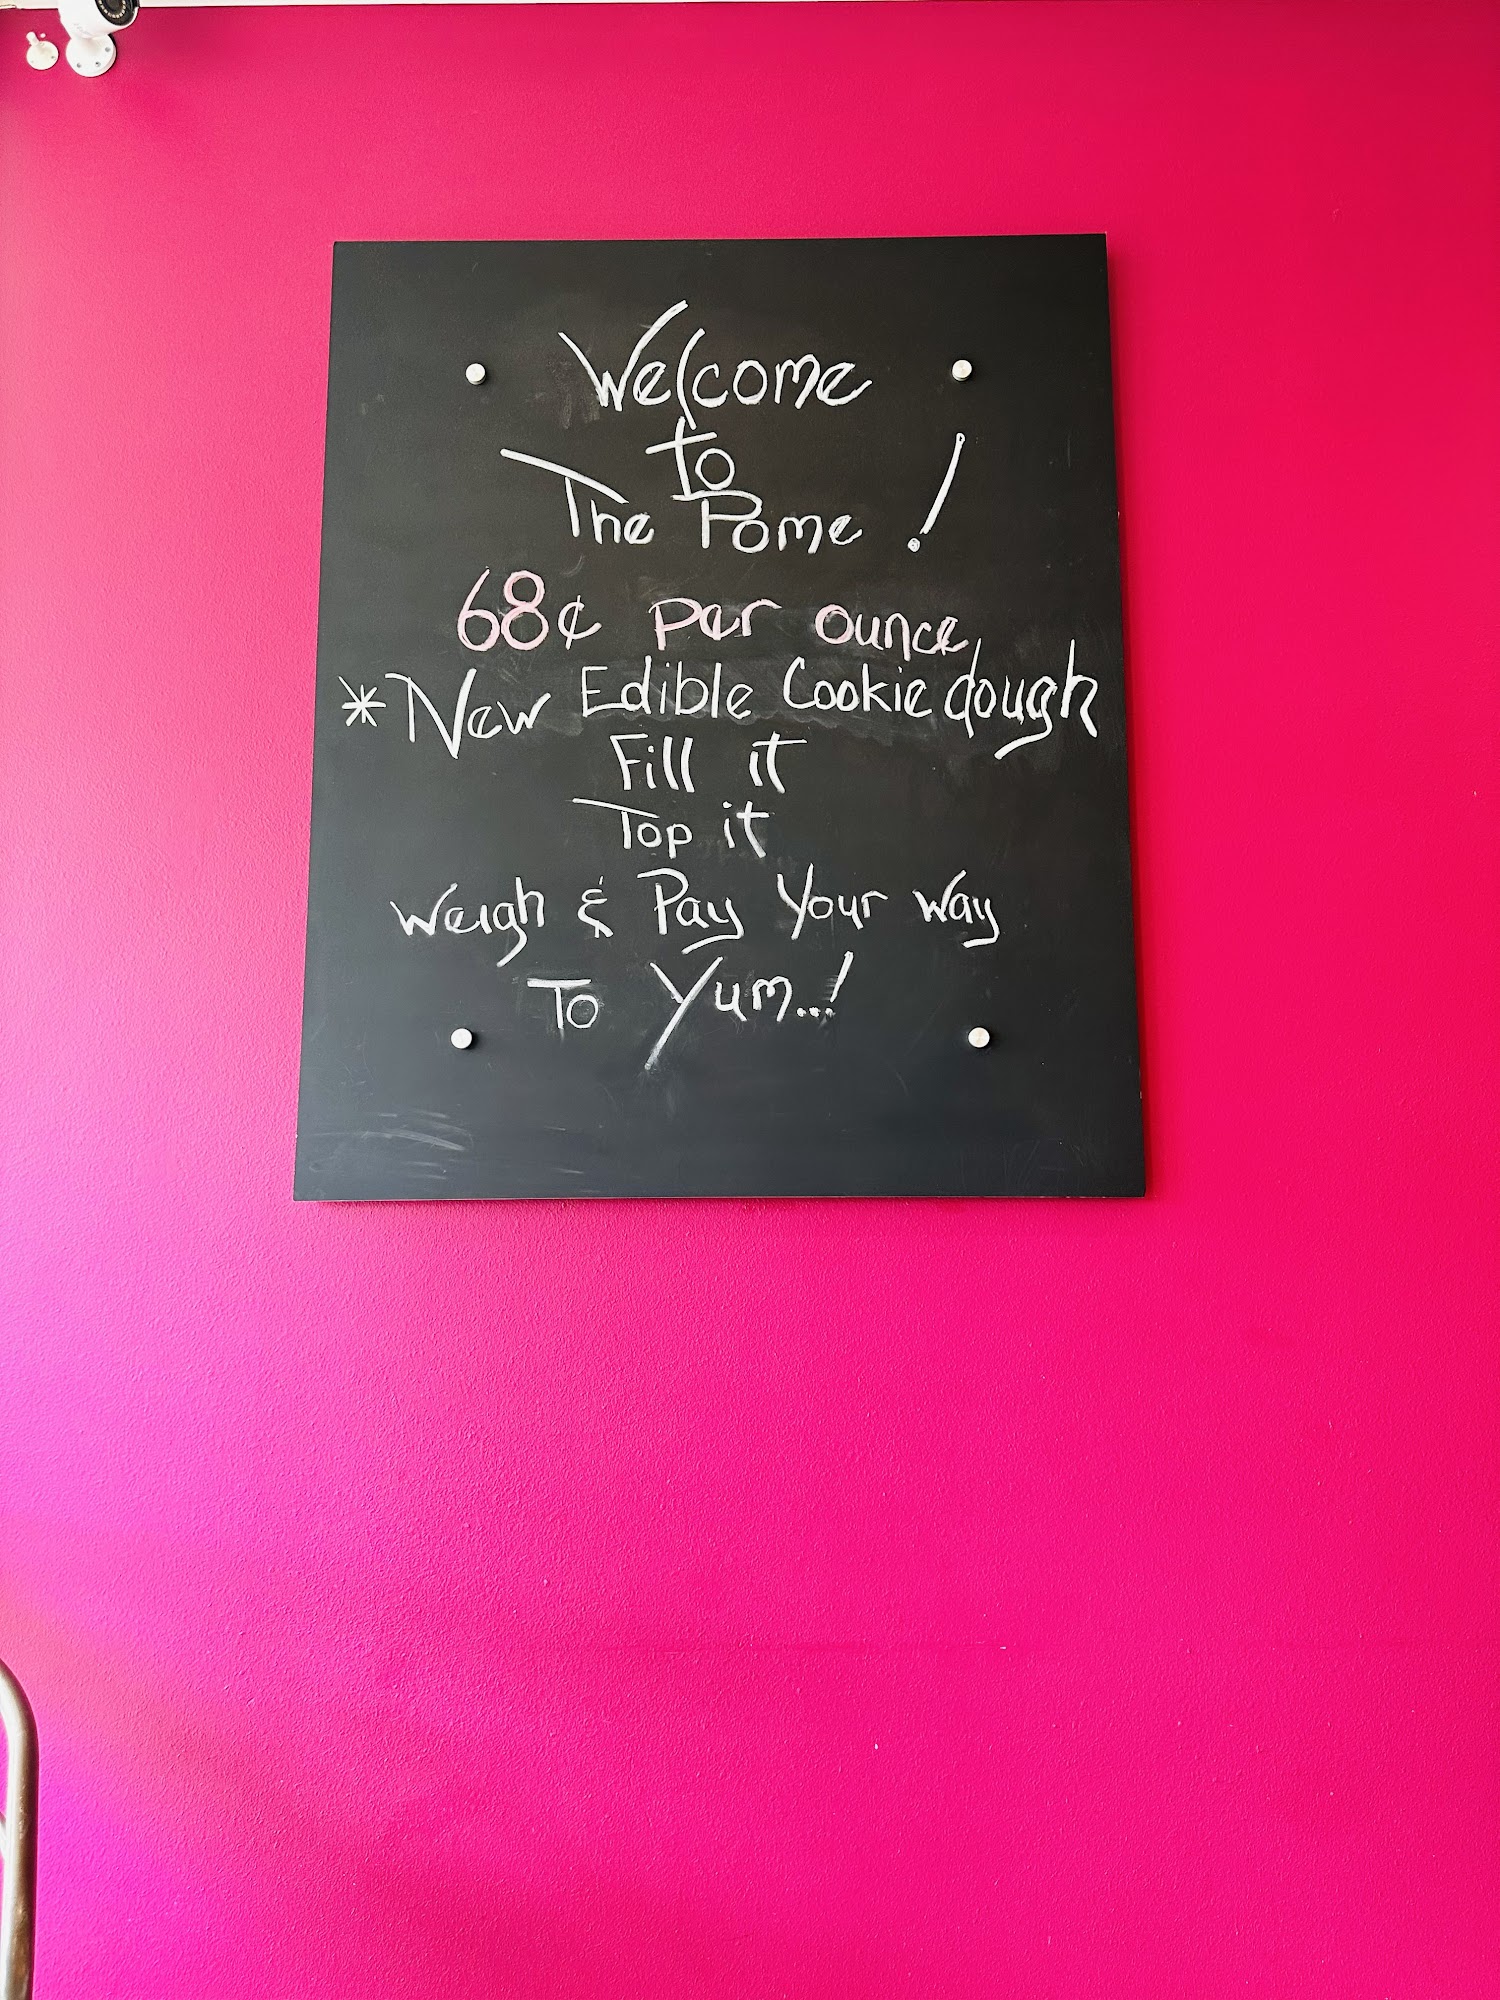 Welcome
To
The Pome !
68¢ per ounce
*New Edible Cookie dough
Fill it
Top it
Weigh & Pay Your Way
To Yum...!